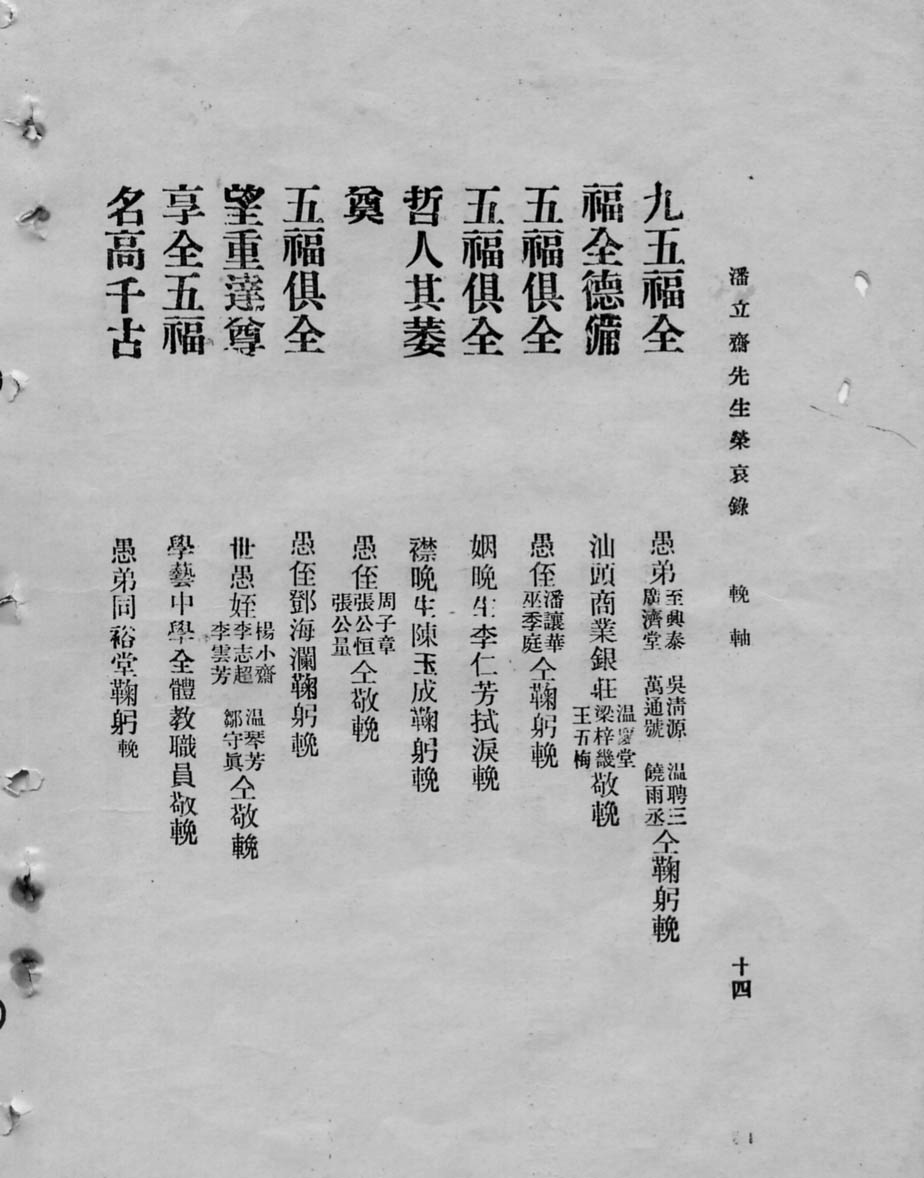 潘立齋先生榮哀錄　輓軸　十四
九五福全　愚弟至興泰 廣濟堂 吳清源 萬通號 溫聘三 饒雨丞仝鞠躬輓
福全德備　汕頭商業銀莊溫堂 梁梓畿 王五梅敬輓
五福俱全　愚侄潘讓華 巫季庭仝鞠躬輓
五福俱全　姻晚生李仁芳拭淚輓
哲人其萎　襟晚生陳玉成鞠躬輓
奠　愚侄周子章 張公恒 張公量仝敬輓
五福俱全　愚侄鄧海瀾鞠躬輓
望重達尊　世愚姪楊小齋 李志超 李雲芳 溫琴芳 鄒守眞仝敬輓
享全五福　學藝中學全體教職員敬輓
名高千古　愚弟同裕堂鞠躬輓